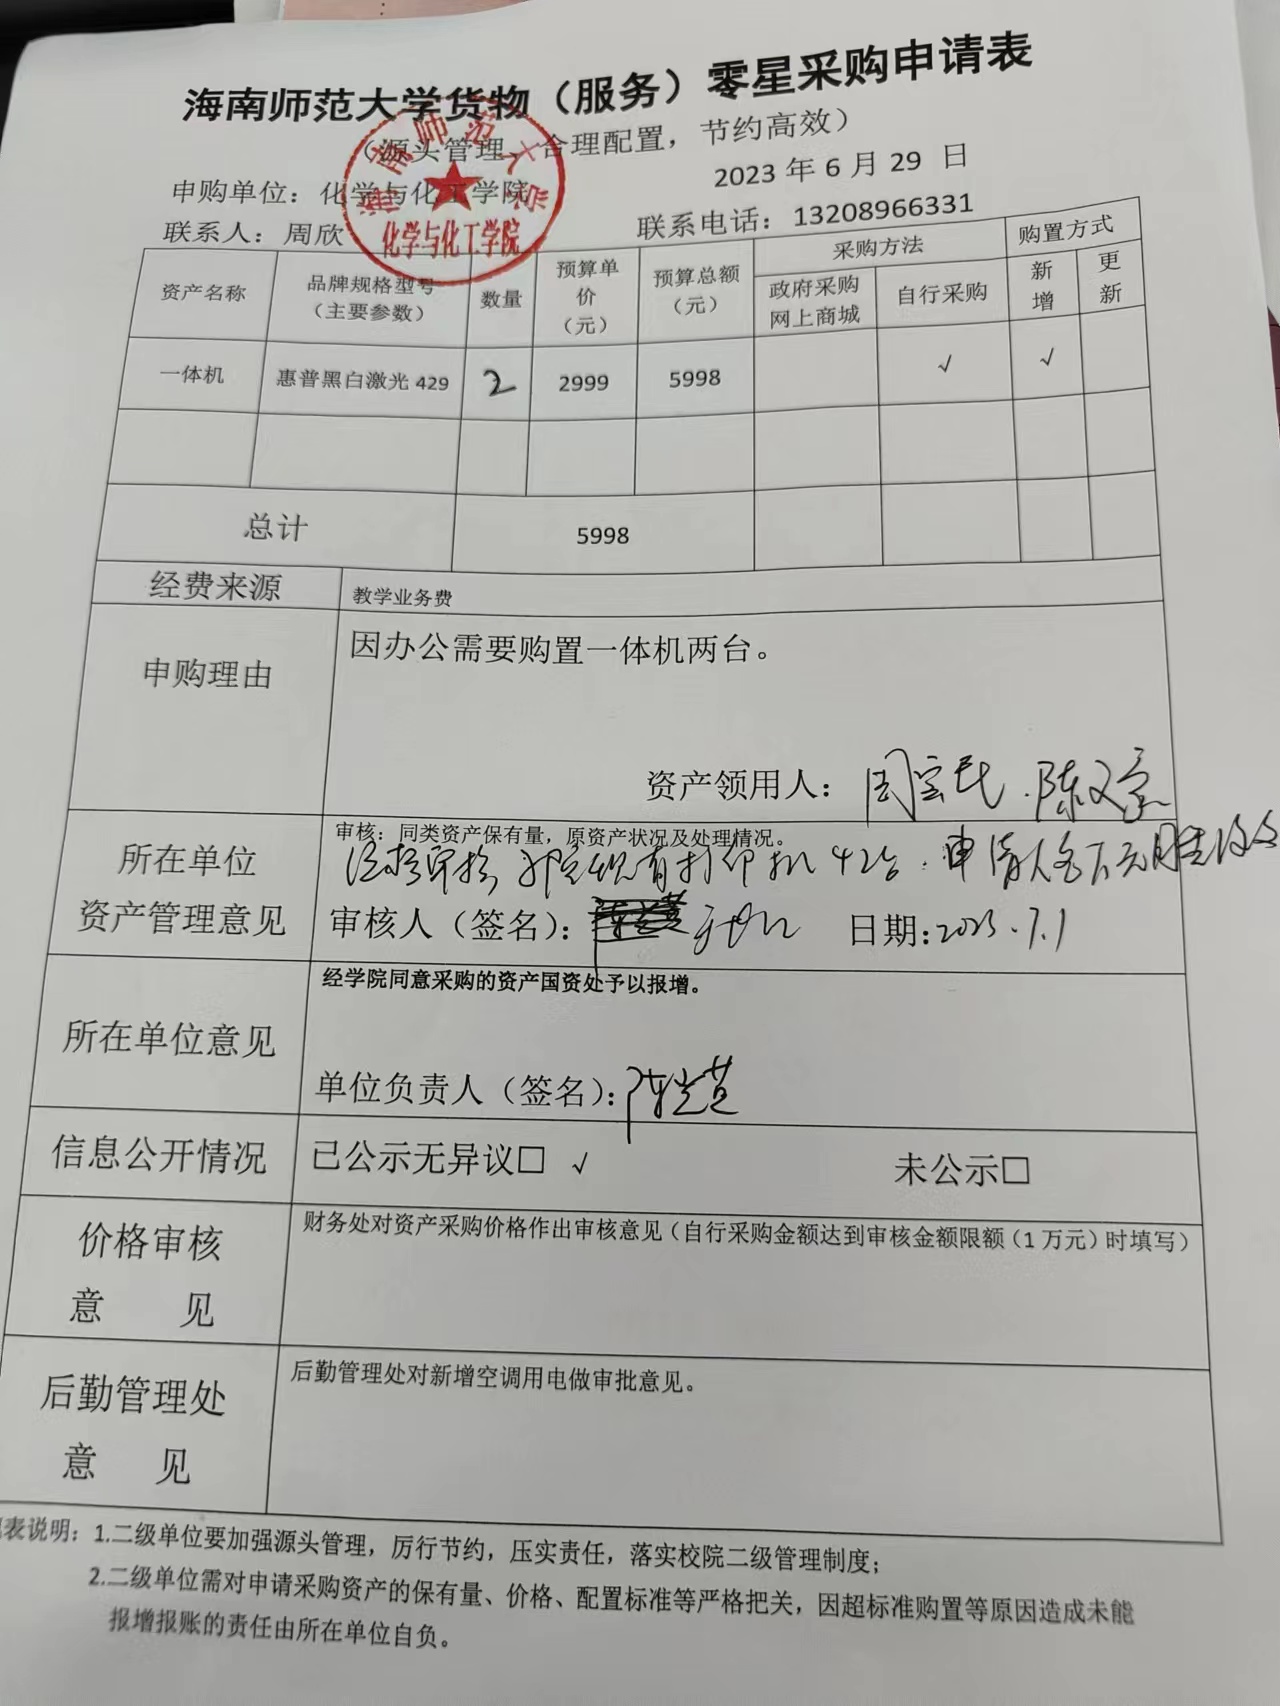 海南师范大学货物（服务）零星采购申请表
（源头管理，合理配置，节约高效）
2023 年 6 月 29 日
申购单位：化学与化工学院
联系人：周欣
联系电话：13208966331
海南师范大学
化学与化工学院
资产名称 品牌规格型号（主要参数） 数量 预算单价（元） 预算总额（元） 采购方法 购置方式
政府采购网上商城 自行采购 新增 更新
一体机 惠普黑白激光 429 2 2999 5998 √ √
总计 5998
经费来源 教学业务费
申购理由 因办公需要购置一体机两台。
资产领用人：
所在单位资产管理意见
审核：同类资产保有量，原资产状况及处理情况。
经核审核 我院现有打印机42台
审核人（签名）： 日期：2023.7.1
所在单位意见
经学院同意采购的资产国资处予以报增。
单位负责人（签名）：
信息公开情况 已公示无异议□ √ 未公示□
价格审核意 见
财务处对资产采购价格作出审核意见（自行采购金额达到审核金额限额（1 万元）时填写）
后勤管理处意 见
后勤管理处对新增空调用电做审批意见。
表说明：1.二级单位要加强源头管理，厉行节约，压实责任，落实校院二级管理制度；
2.二级单位需对申请采购资产的保有量、价格、配置标准等严格把关，因超标准购置等原因造成未能
报增报账的责任由所在单位自负。